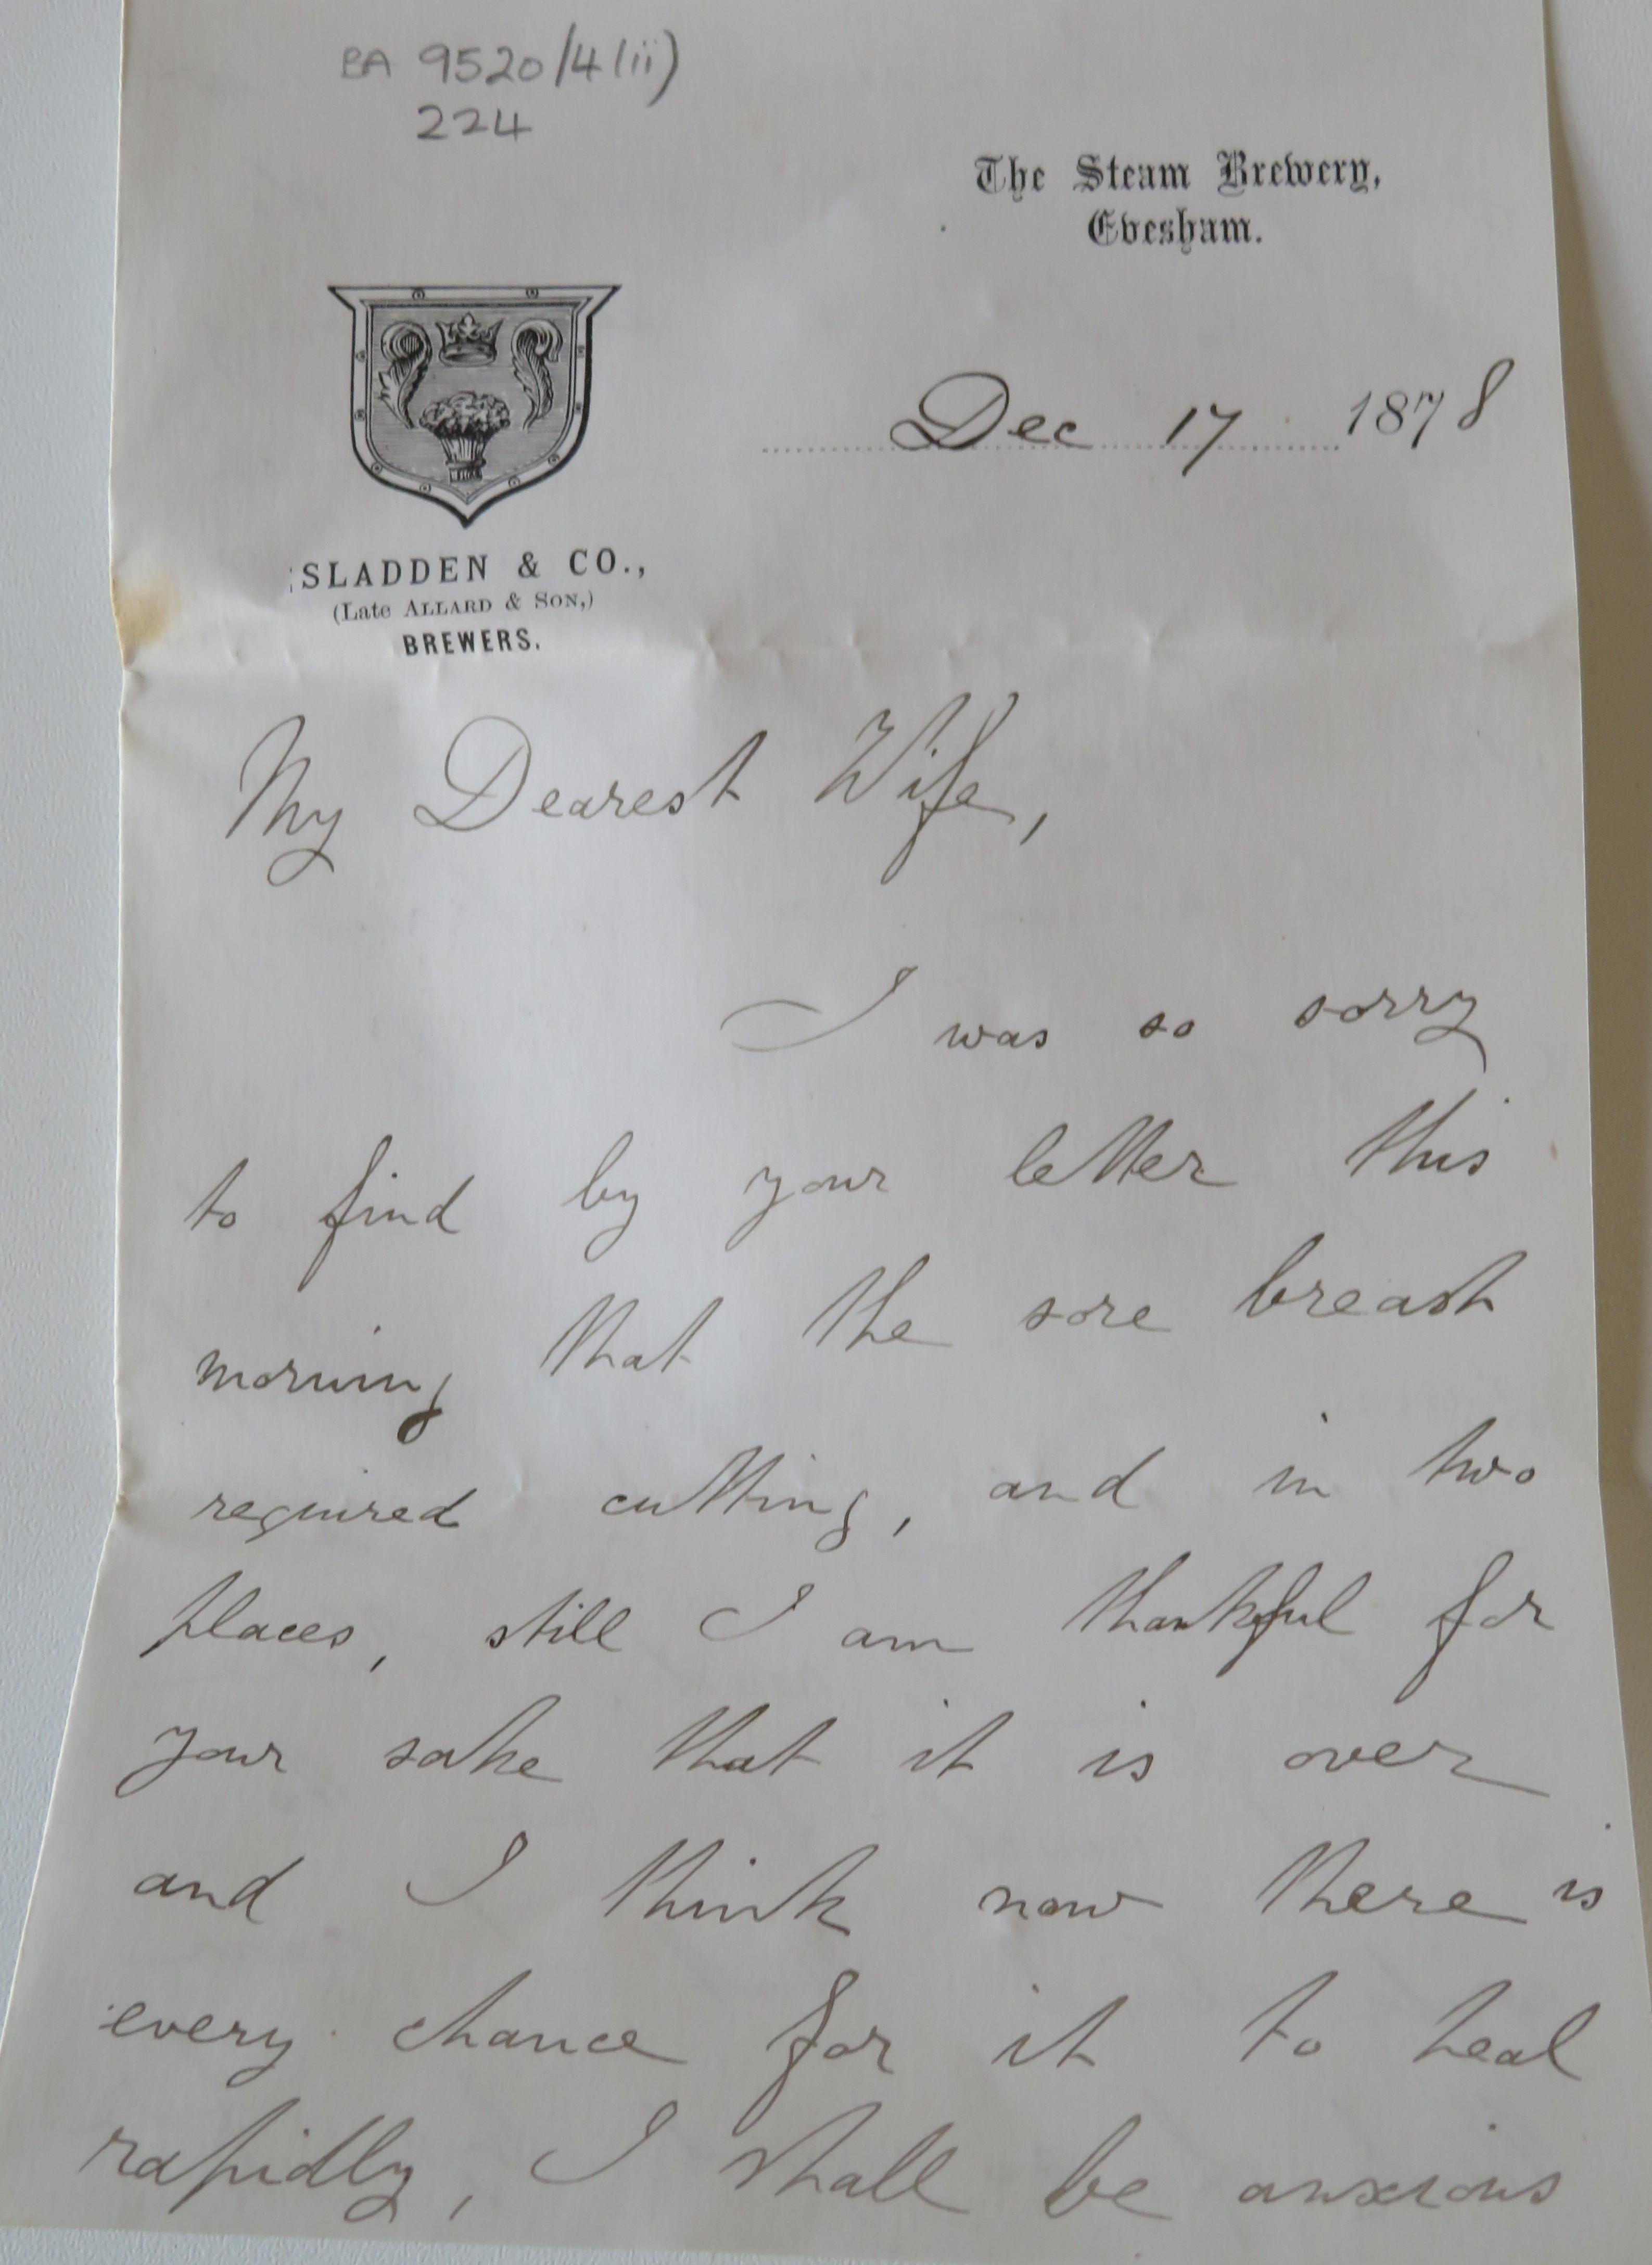 BA 9520/4(ii)
224
The Steam Brewery,
Evesham.
Dec 17 1878
SLADDEN & CO.,
(Late ALLARD & SON,)
BREWERS.
My Dearest Wife,
I was so sorry
to find by your letter this
morning that the sore breast
required cutting, and in two
places, still I am thankful for
your sake that it is over
and I think now there is
every chance for it to heal
rapidly, I shall be anxious